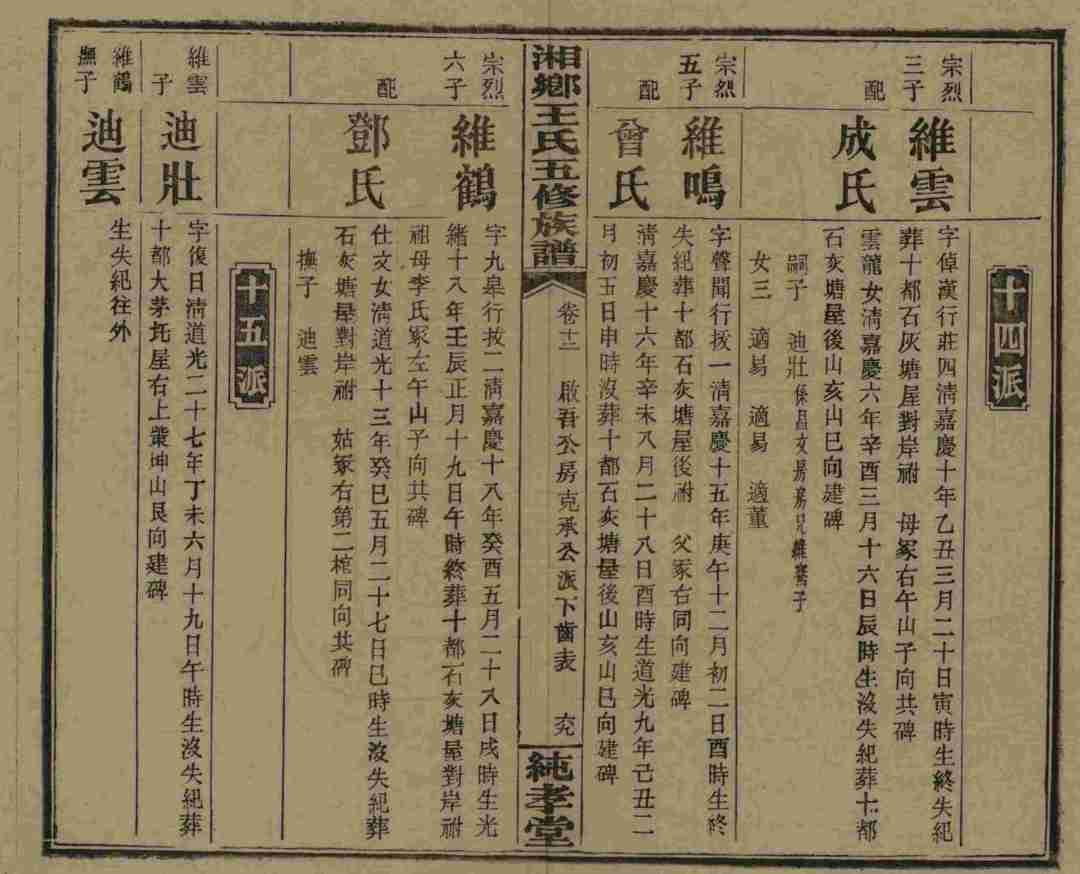 十四派
宗烈
三子
維雲
字倬漢行莊四清嘉慶十年乙丑三月二十日寅時生終失紀
葬十都石灰塘屋對岸祔　母冢右午山子向共碑
配
成氏
雲龍女清嘉慶六年辛酉三月十六日辰時生沒失紀葬十都
石灰塘屋後山亥山巳向建碑
嗣子　迪壯係昌文房房兄維騫子
女三　適易　適易　適董
宗烈
五子
維鳴
字聲聞行拔一清嘉慶十五年庚午十二月初二日酉時生終
失紀葬十都石灰塘屋後祔　父冢右同向建碑
配
曾氏
清嘉慶十六年辛未八月二十八日酉時生道光九年己丑二
月初五日申時沒葬十都石灰塘屋後山亥山巳向建碑
湘鄉王氏五修族譜
卷十二　啟吾公房克承公派下齒表
純孝堂
宗烈
六子
維鶴
字九皋行拔二清嘉慶十八年癸酉五月二十八日戌時生光
緒十八年壬辰正月十九日午時終葬十都石灰塘屋對岸祔
祖母李氏冢左午山子向共碑
配
鄧氏
仕文女清道光十三年癸巳五月二十七日巳時生沒失紀葬
石灰塘屋對岸祔　姑冢右第二棺同向共碑
撫子　迪雲
十五派
維雲
子
迪壯
字復日清道光二十七年丁未六月十九日午時生沒失紀葬
十都大茅托屋右上叢坤山艮向建碑
維鶴
撫子
迪雲
生失紀往外